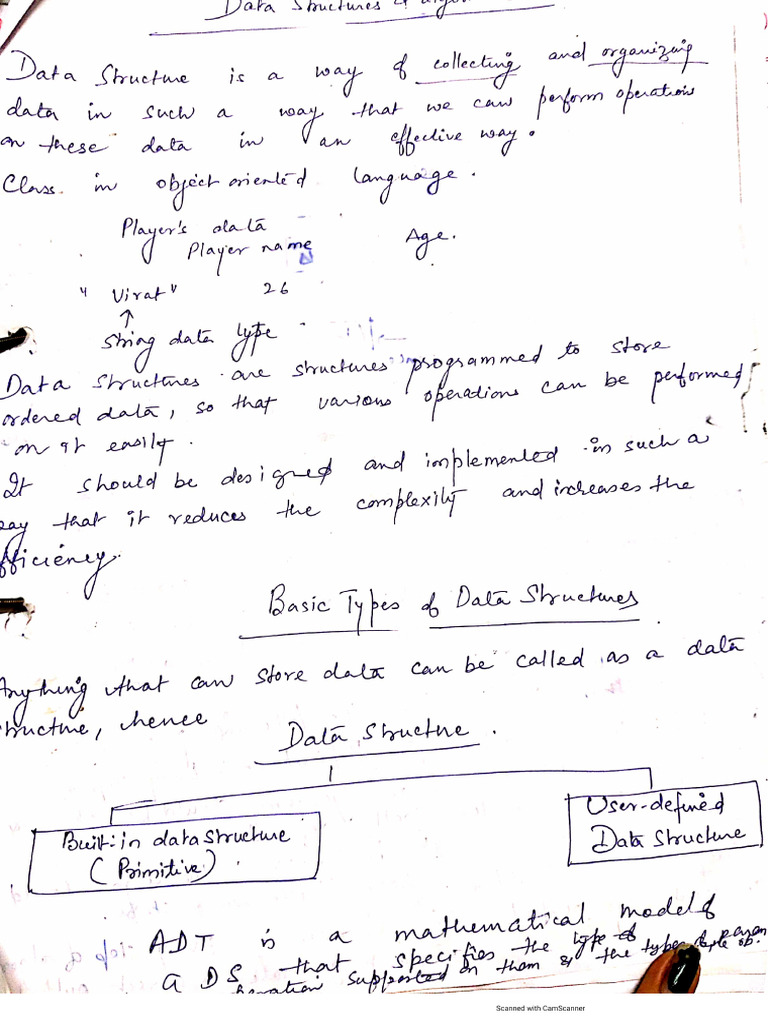 Data Structures &
Data Structure is a way of collecting and organizing
data in such a way that we can perform operation
on these data in an effective way.
Class in object oriented language.
Player's data
Player name Age.
"Virat" 26
↑
String data type
Data structures are structures programmed to store
ordered data, so that various operations can be performed
on it easily.
It should be designed and implemented in such a
way that it reduces the complexity and increases the
efficiency.
Basic Types of Data Structures
Anything that can store data can be called as a data
structure, hence
Data Structure.
Built-in data structure
(Primitive)
User-defined
Data Structure
ADT is a mathematical model of
a DS that specifies the type of
supported on them & the types
Scanned with CamScanner